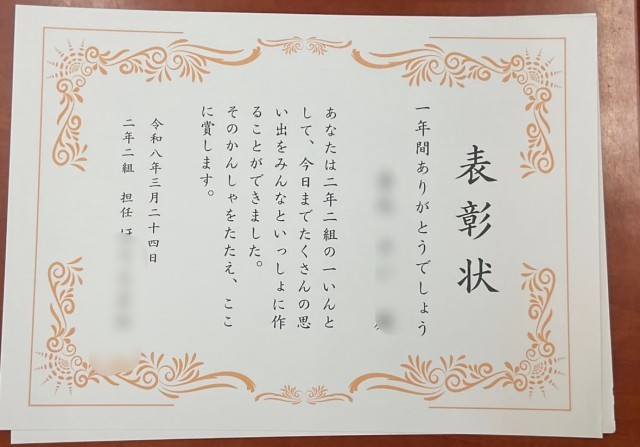 表彰状
一年間ありがとうでしょう
あなたは二年二組の一いんと
して、今日までたくさんの思
い出をみんなといっしょに作
ることができました。
そのかんしゃをたたえ、ここ
に賞します。
令和八年三月二十四日
二年二組 担任